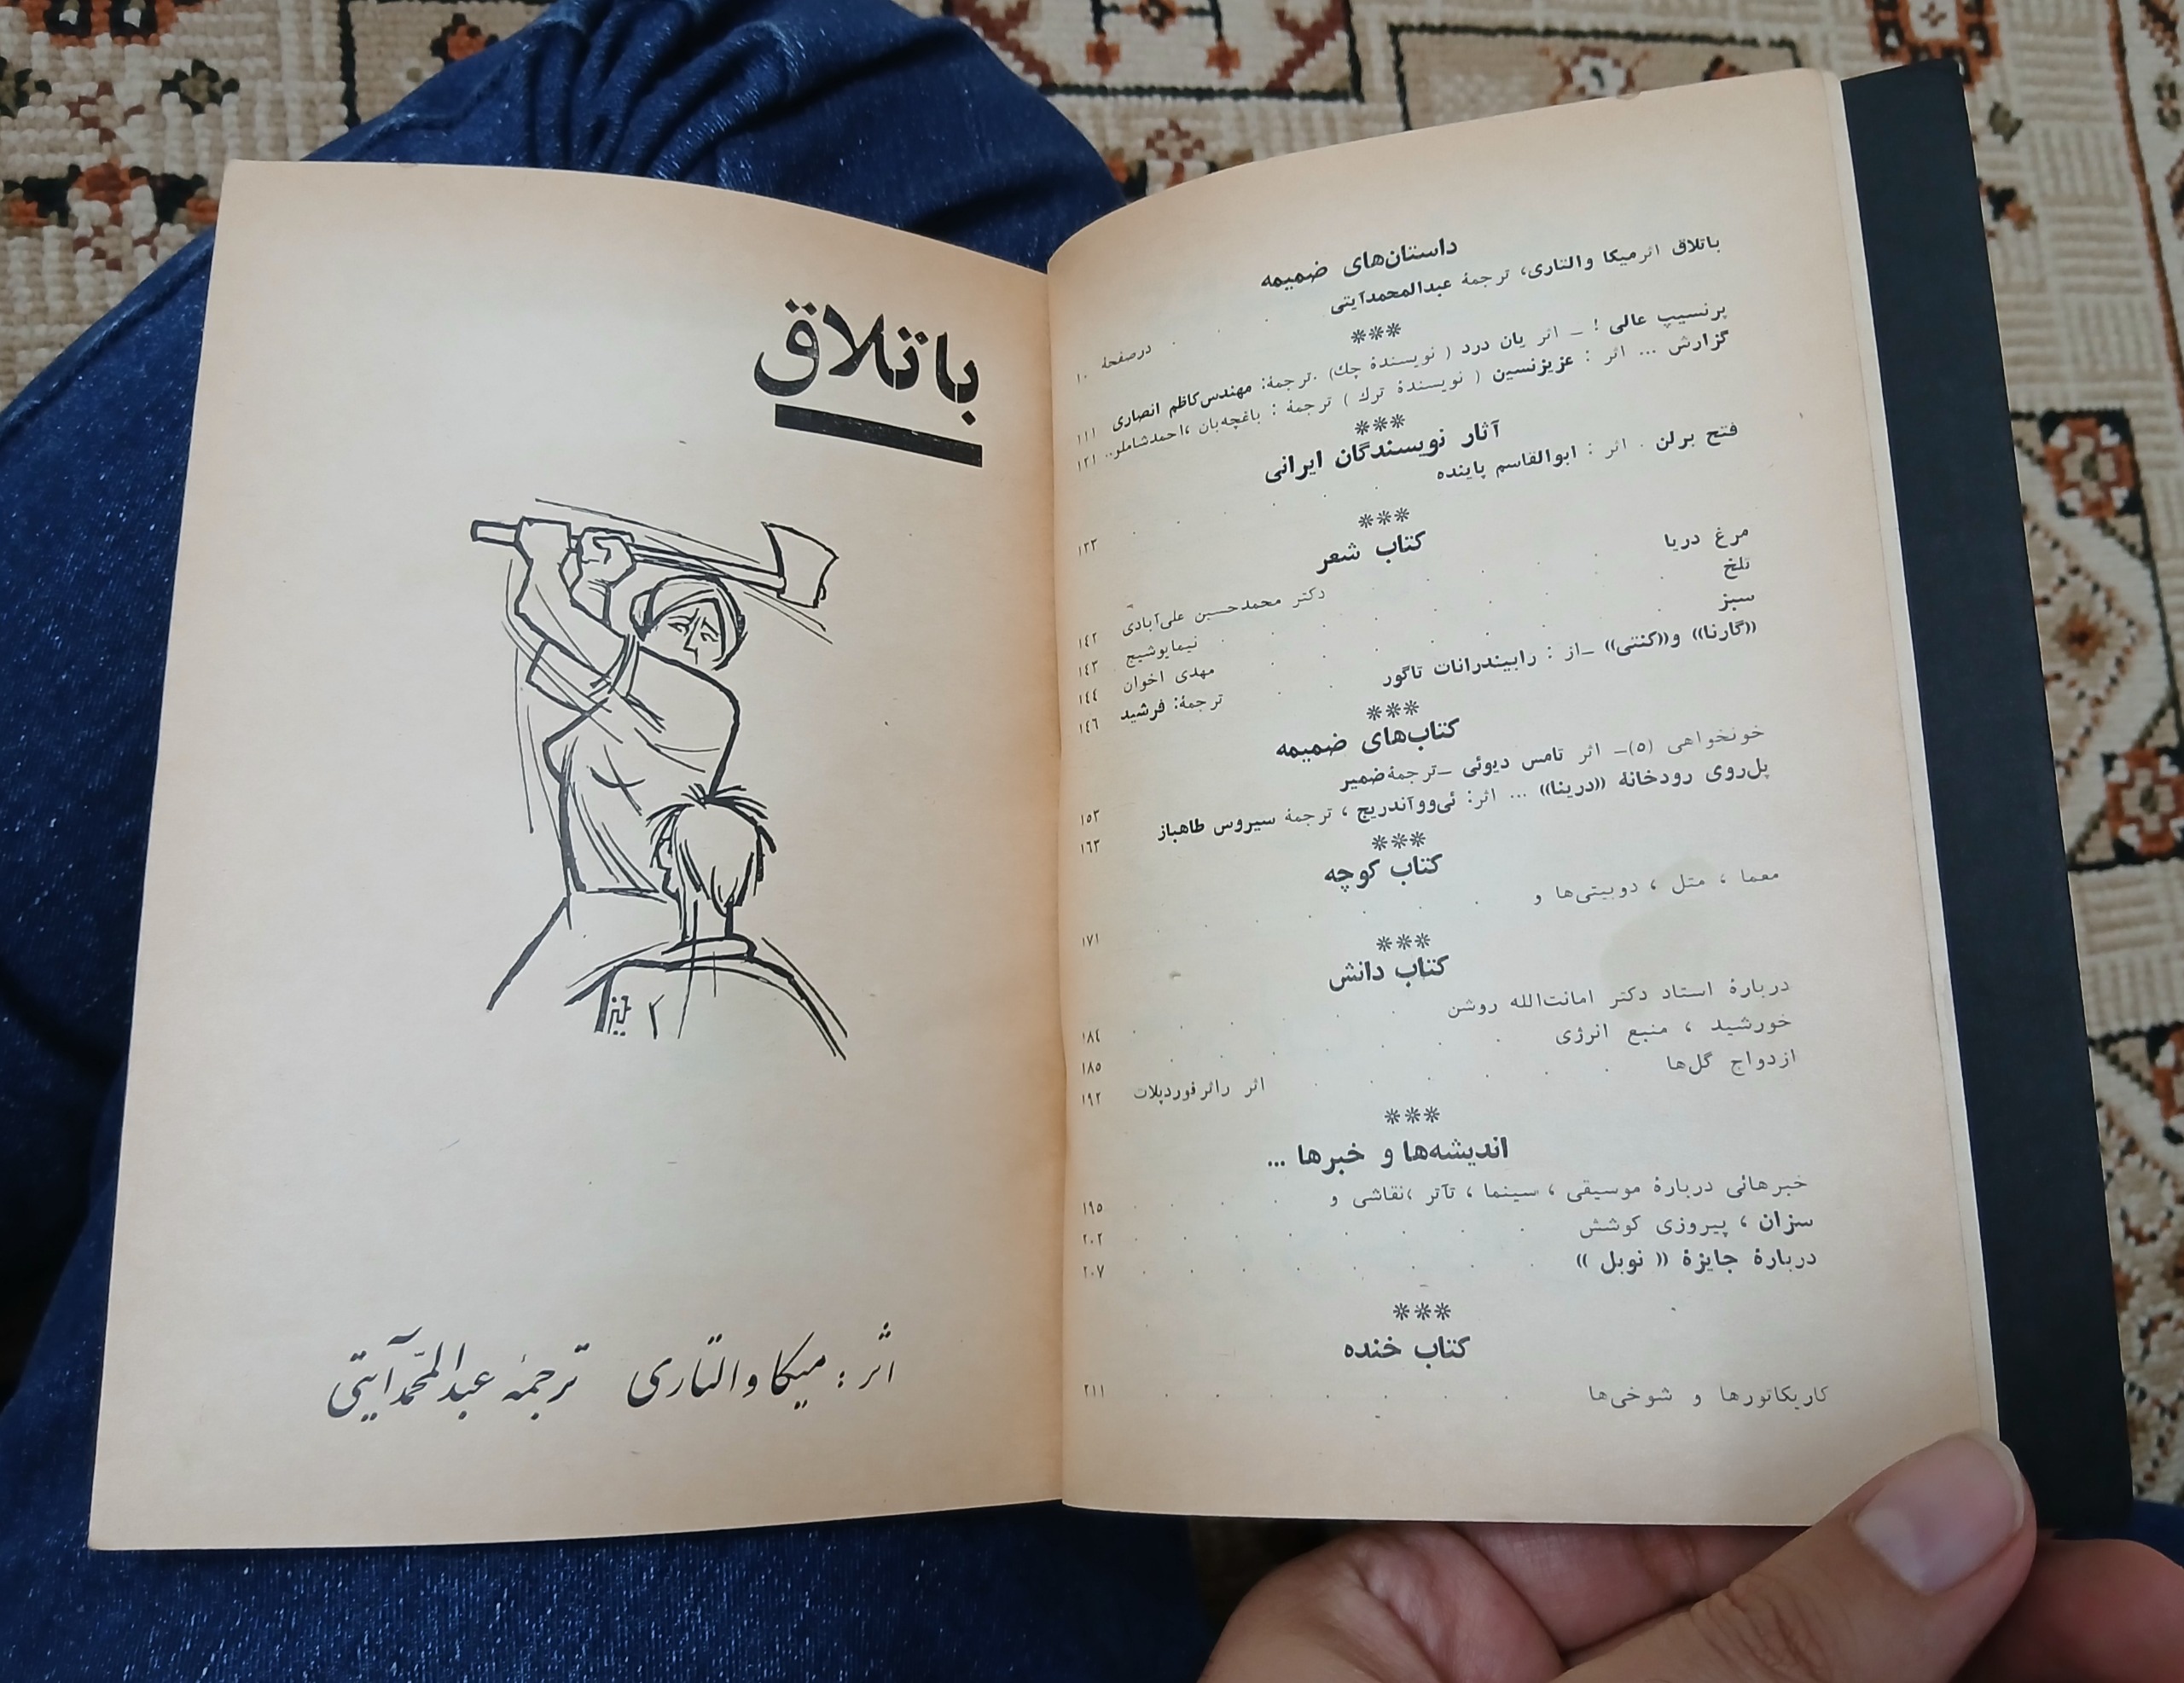 داستان‌های ضمیمه
باتلاق اثر میکا والتاری، ترجمهٔ عبدالمحمد آیتی . . . درصفحهٔ ۱۰
***
پرنسیپ عالی ! _ اثر یان درد ( نویسندهٔ چك) .ترجمهٔ: مهندس کاظم انصاری ۱۱۱
گزارش ... اثر : عزیز نسین ( نویسندهٔ ترك ) ترجمهٔ : باغچه‌بان ،احمد شاملو.. ۱۲۱
***
آثار نویسندگان ایرانی
فتح برلن . اثر : ابوالقاسم پاینده . . . . . ۱۳۳
***
کتاب شعر
مرغ دریا . . . . دکتر محمدحسین علی‌آبادی ۱٤۲
تلخ . . . . . نیما یوشیج ۱٤۳
سبز . . . . . مهدی اخوان ۱٤٤
((گارنا)) و((کنتی)) _از : رابیندرانات تاگور . . . ترجمهٔ: فرشید ۱٤٦
***
کتاب‌های ضمیمه
خونخواهی (٥)_ اثر تامس دیوئی _ترجمهٔ ضمیر ۱٥۳
پل‌روی رودخانهٔ ((درینا)) ... اثر: ئی‌وو آندریچ ، ترجمهٔ سیروس طاهباز ۱٦۳
***
کتاب کوچه
معما ، متل ، دوبیتی‌ها و . . . . . . ۱۷۱
***
کتاب دانش
دربارهٔ استاد دکتر امانت‌الله روشن . . . . . . ۱۸٤
خورشید ، منبع انرژی . . . . . . . ۱۸٥
ازدواج گل‌ها . . . . . اثر راثرفوردپلات ۱۹۲
***
اندیشه‌ها و خبرها ...
خبرهائی دربارهٔ موسیقی ، سینما ، تآتر ،نقاشی و . . . . ۱۹٥
سزان ، پیروزی کوشش . . . . . . . ۲۰۲
دربارهٔ جایزهٔ (( نوبل )) . . . . . . . ۲۰۷
***
کتاب خنده
کاریکاتورها و شوخی‌ها . . . . . . . ۲۱۱
باتلاق
اثر : میکا والتاری ترجمهٔ عبدالمحمّد آیتی